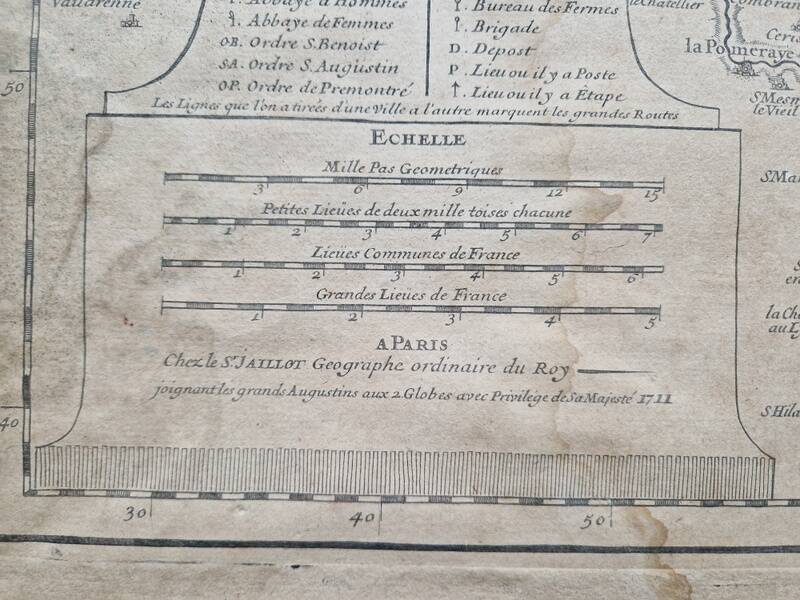 Vaudrenne
Abbaye d'Hommes
Abbaye de Femmes
OB. Ordre S. Benoist
SA. Ordre S. Augustin
OP. Ordre de Premontré
Bureau des Fermes
Brigade
D. Depost
P. Lieu ou il y a Poste
Lieu ou il y a Etape
le Chatellier
Combran
Ceris
la Pomeraye
S Mesm
le Vieil
Les Lignes que l'on a tirées d'une Ville a l'autre marquent les grandes Routes
50
ECHELLE
Mille Pas Geometriques
3 6 9 12 15
Petites Lieües de deux mille toises chacune
1 2 3 4 5 6 7
Lieües Communes de France
1 2 3 4 5 6
Grandes Lieües de France
1 2 3 4 5
A PARIS
Chez le Sr. JAILLOT Geographe ordinaire du Roy
joignant les grands Augustins aux 2. Globes avec Privilége de Sa Majesté 1711
S Mar
la Cha
au Ly
S Hila
40
30 40 50